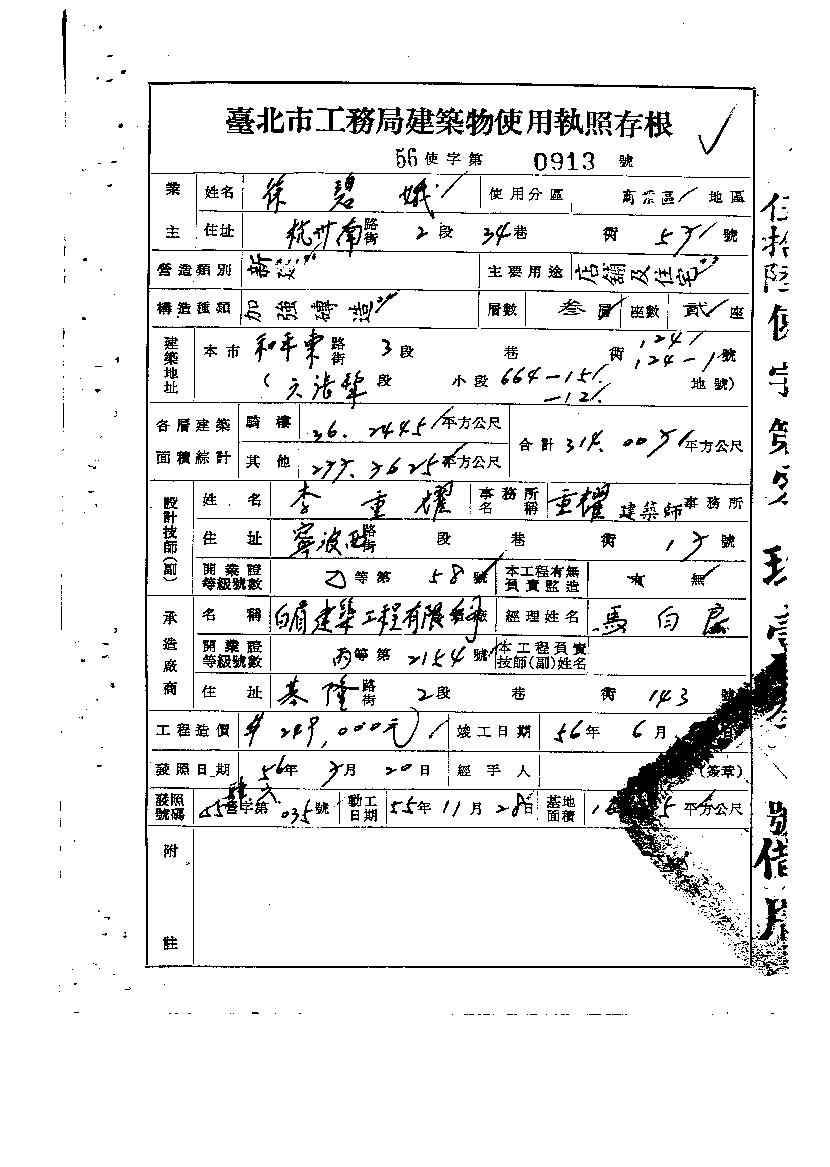 臺北市工務局建築物使用執照存根
56使字第 0913 號
業主 姓名 徐碧娥 使用分區 商業區 地區
住址 杭州南路街 2段 34巷 街 5 號
營造類別 新建 主要用途 店舖及住宅
構造種類 加強磚造 層數 叁層 座數 貳座
建築地址 本市 和平東路街 3段 巷 街 124 124-1號
(六張犂段 小段 664-15 -12 地號)
各層建築面積綜計 騎樓 36.2445平方公尺 合計 314.00 平方公尺
其他 平方公尺
設計技師(副) 姓名 李重耀 事務所名稱 重耀建築師事務所
住址 寧波西路街 段 巷 街 1 號
開業證等級號數 乙等第 58號 本工程有無負責監造 有 無
承造廠商 名稱 白眉建築工程有限公司 廠 經理姓名 馬白
開業證等級號數 丙等第 2154號 本工程負責技師(副)姓名
住址 基隆路街 2段 巷 街 143 號
工程造價 $249,000元 竣工日期 56年 6月 日
發照日期 56年 月 20日 經手人 (簽章)
發照號碼 字第 035號 動工日期 55年11月28日 基地面積 平方公尺
附註
伍拾陸使字第